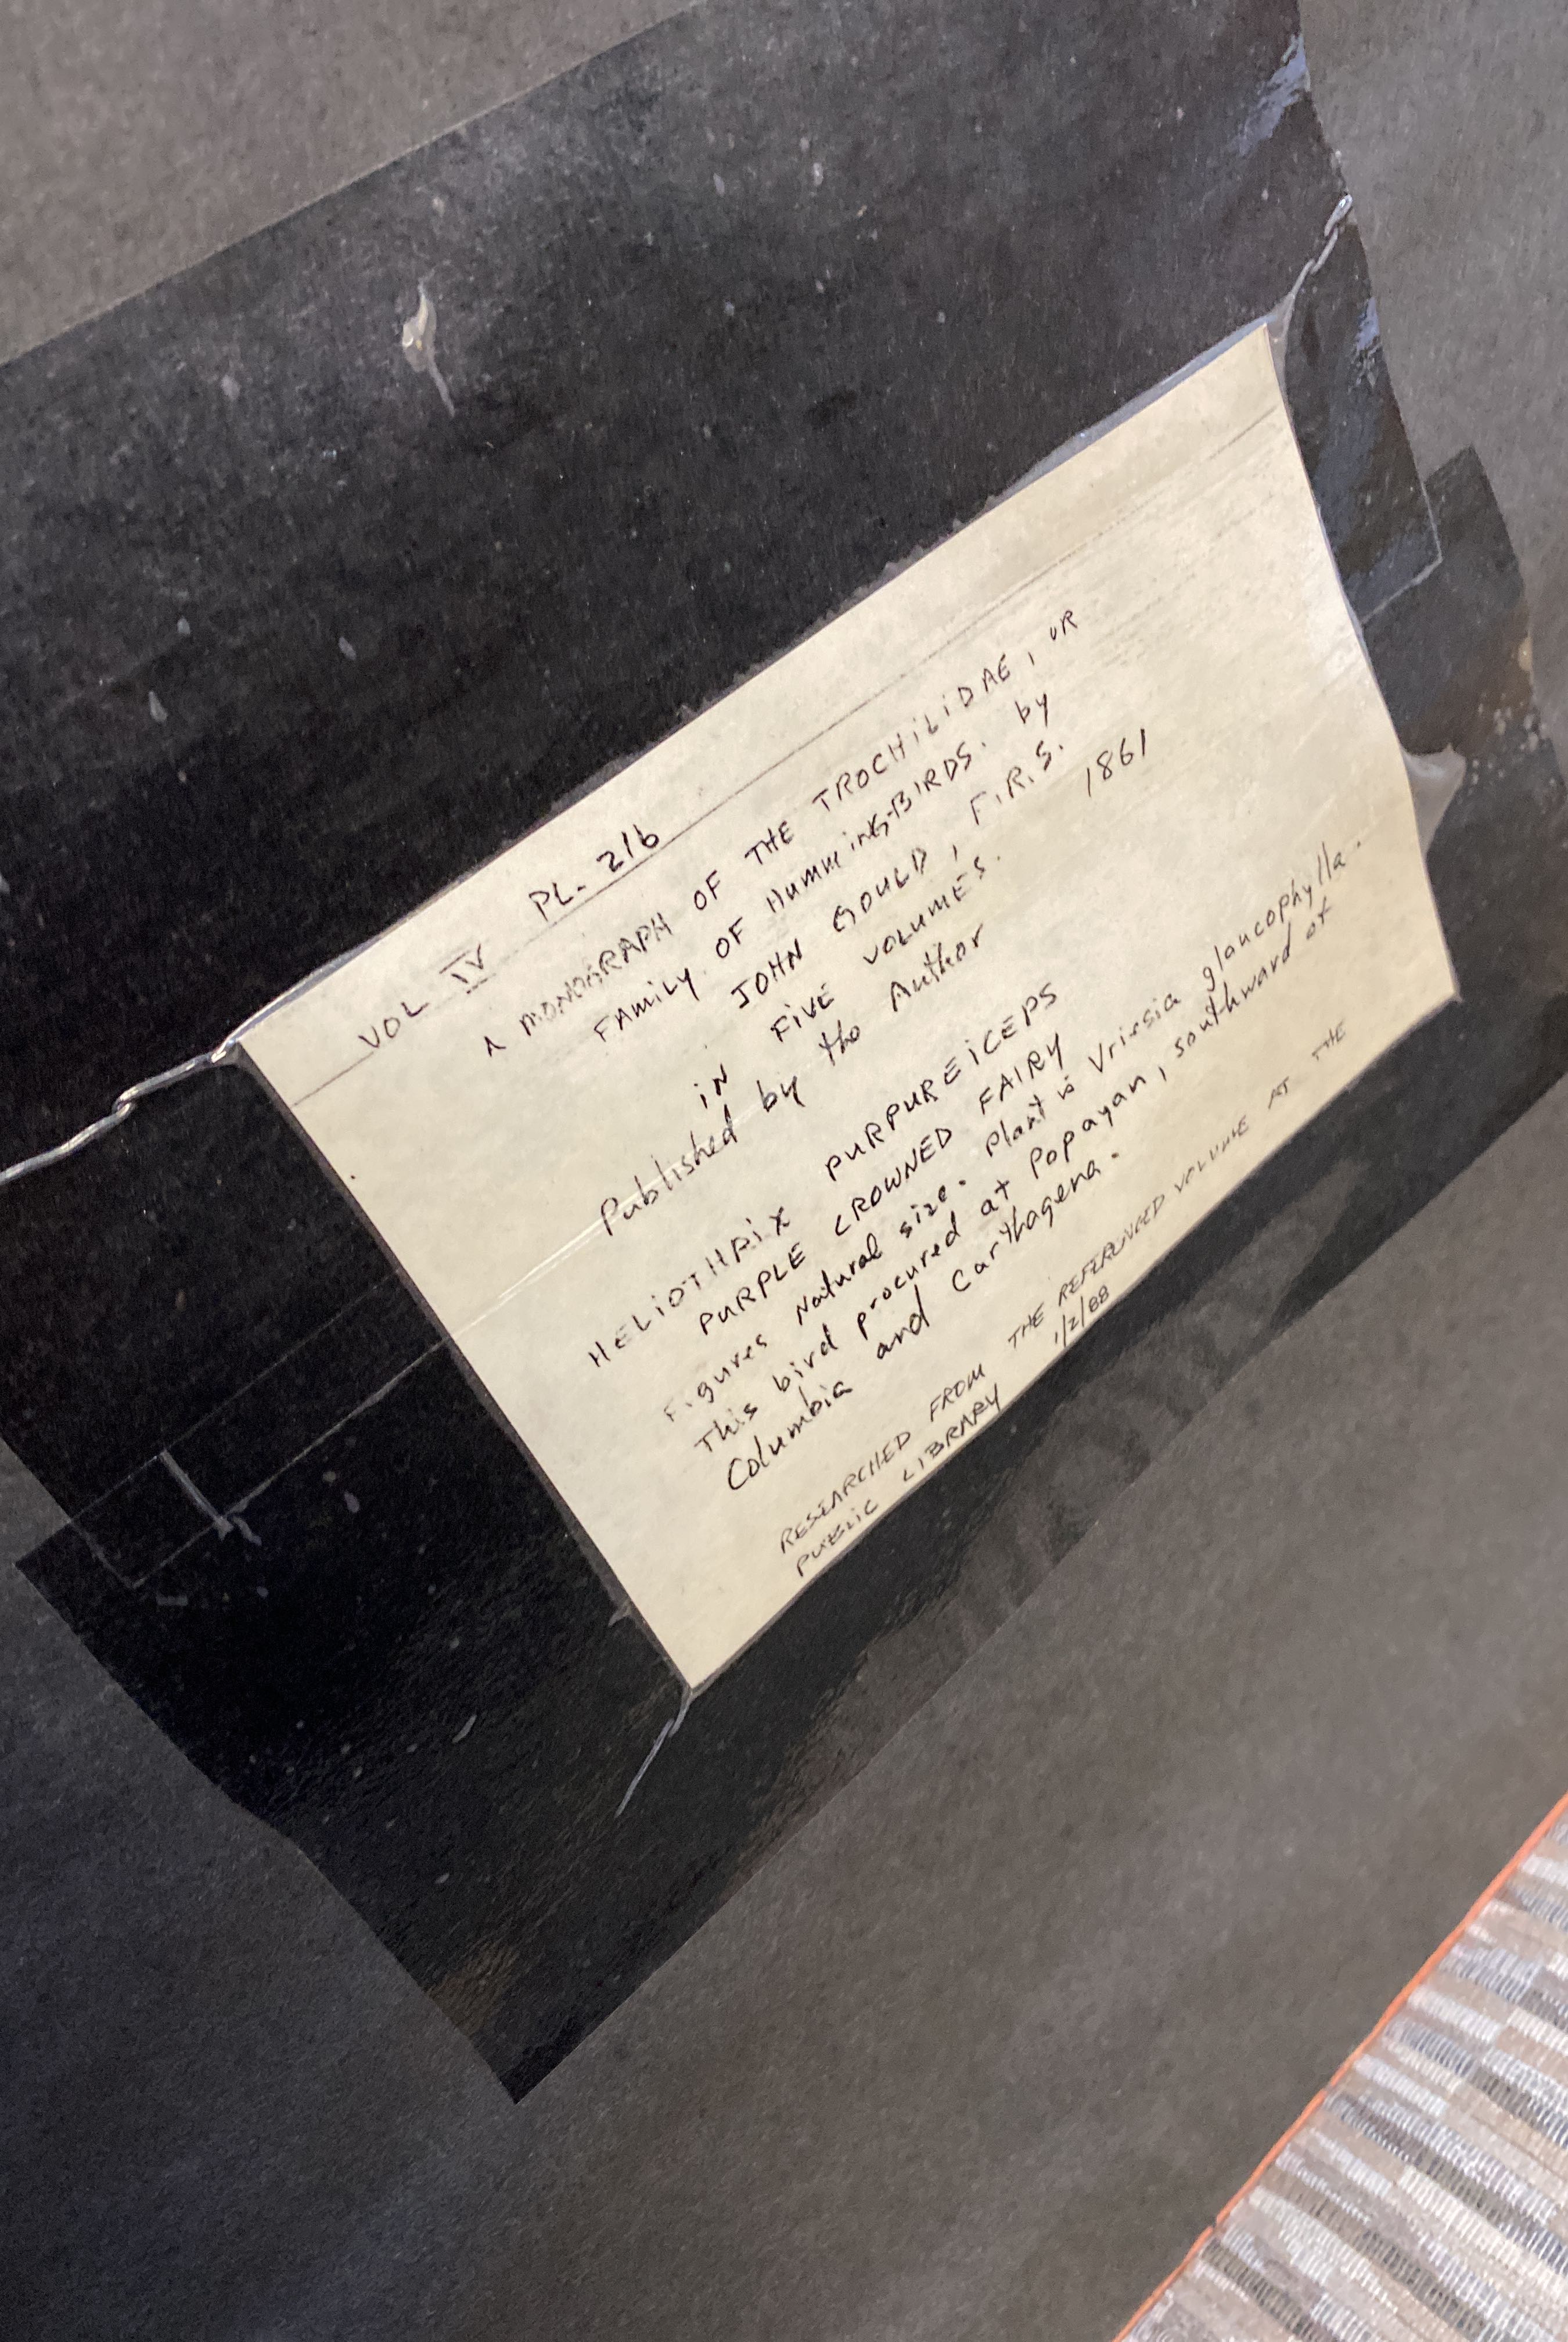 VOL IV PL. 216
A MONOGRAPH OF THE TROCHiLiDAE, OR
FAMiLY OF HummiNG-BIRDS. by
JOHN GOULD, F.R.S.
iN FiVE VOLUMES.
Published by the Author 1861
HELiOTHRiX PURPUREiCEPS
PURPLE CROWNED FAIRY
Figures Natural size. Plant is Vriesia glaucophylla.
This bird procured at Popayan, southward of
Columbia and Carthagena.
RESEARCHED FROM THE REFERENCED VOLUME AT THE
PUBLIC LIBRARY 1/2/88